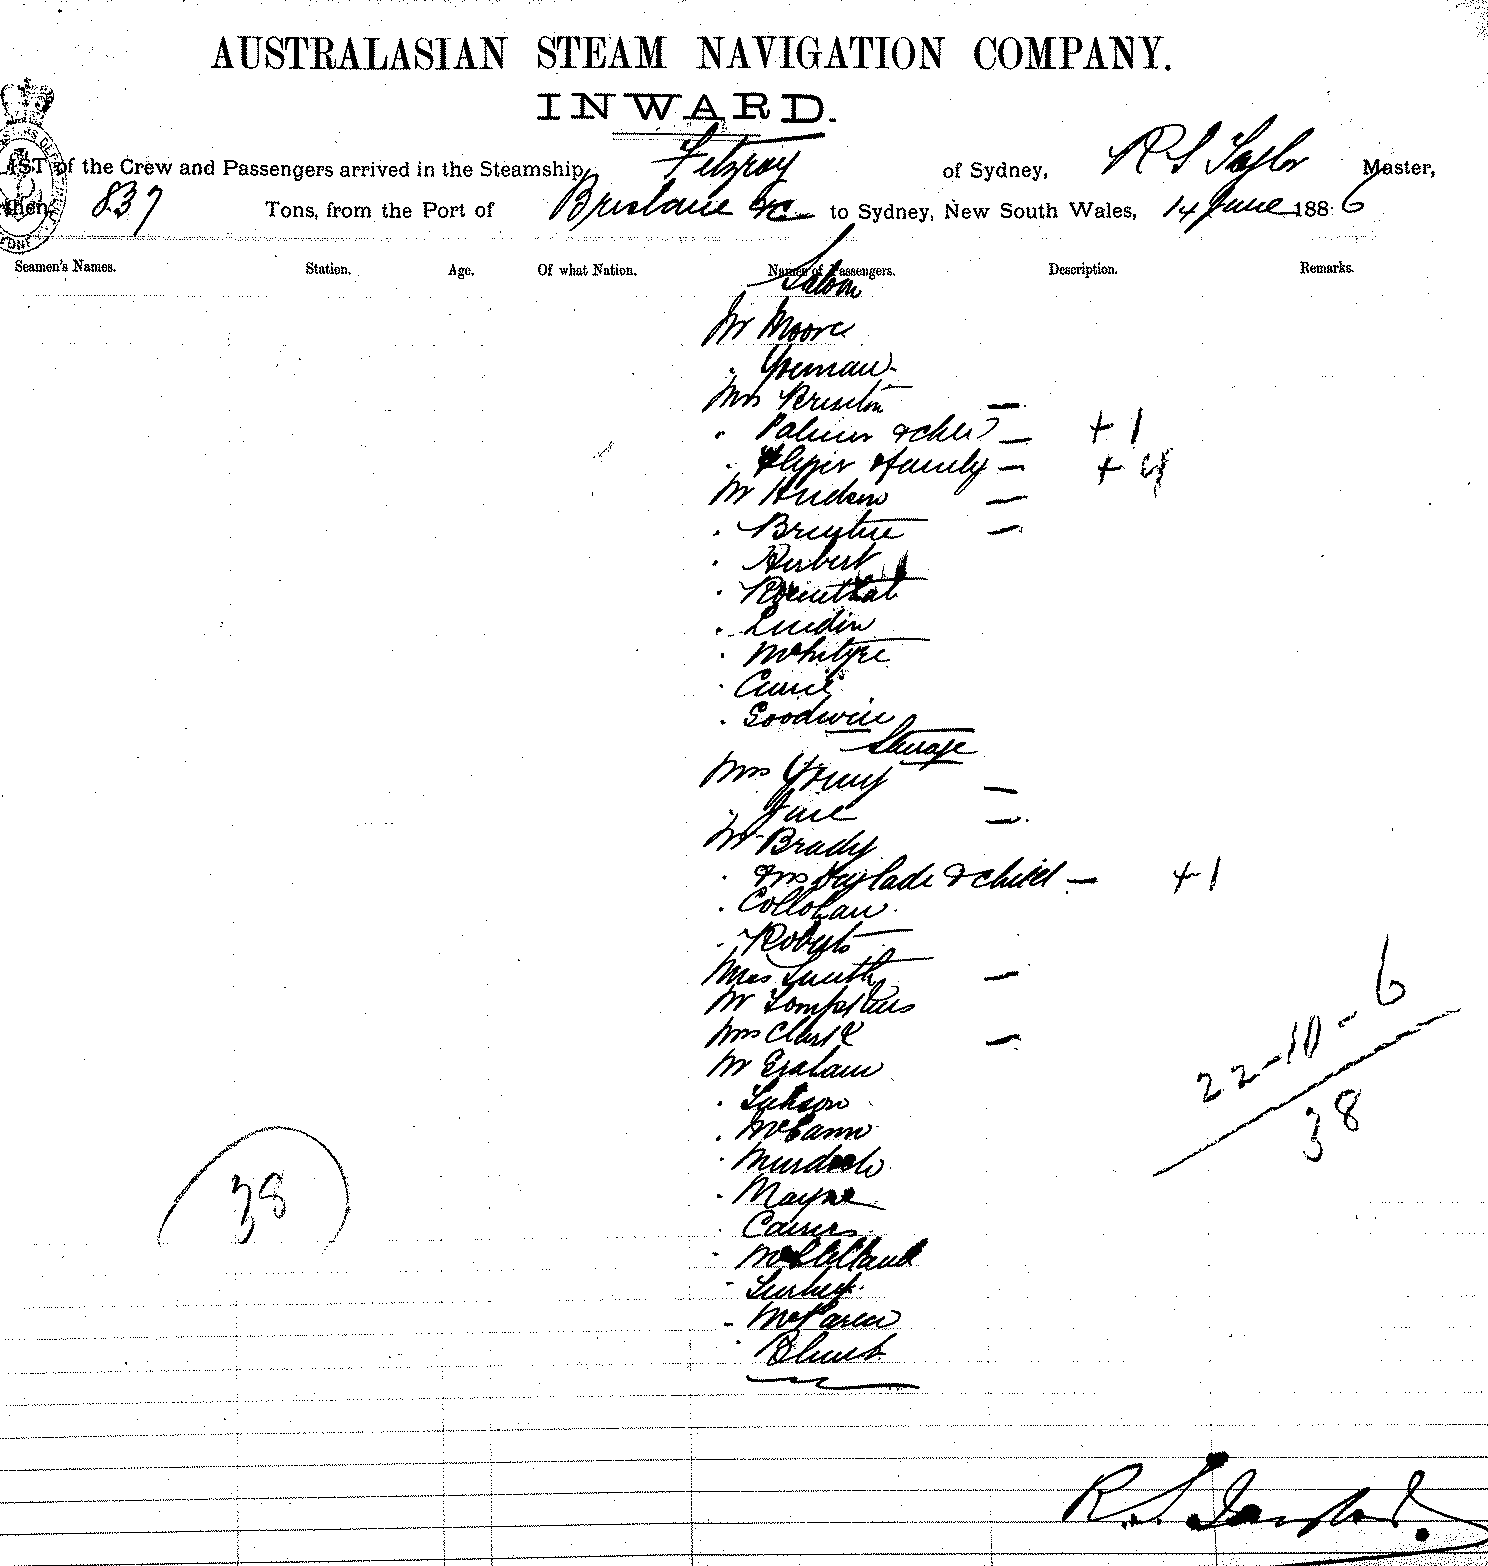 AUSTRALASIAN STEAM NAVIGATION COMPANY.
INWARD.
LIST of the Crew and Passengers arrived in the Steamship Fitzroy of Sydney, R S Taylor Master,
Burthen 837 Tons, from the Port of Brisbane &c to Sydney, New South Wales, 14 June 1886
Seamen's Names. Station. Age. Of what Nation. Names of Passengers. Description. Remarks.
Saloon
Mr Moore
" Yoeman
Mrs Brunton —
" Palmer & child — + 1
" & family — + 4
Mr Hudson —
" —
" Herbert
" Rosenthal
" Lundin
" McIntyre
" Currie
" Goodwin
Steerage
Mrs Young —
" —
Mr Brady
" Mrs & child — + 1
" Collohan
" Roberts
Miss Smith —
Mr Tompkins
Mrs Clark —
Mr Graham
" Jackson
" McCann
" Murdoch
" Mayne
" Cairns
" McClelland
"
" McLaren
" Blunt
22-10-6
38
38
R. S. Taylor